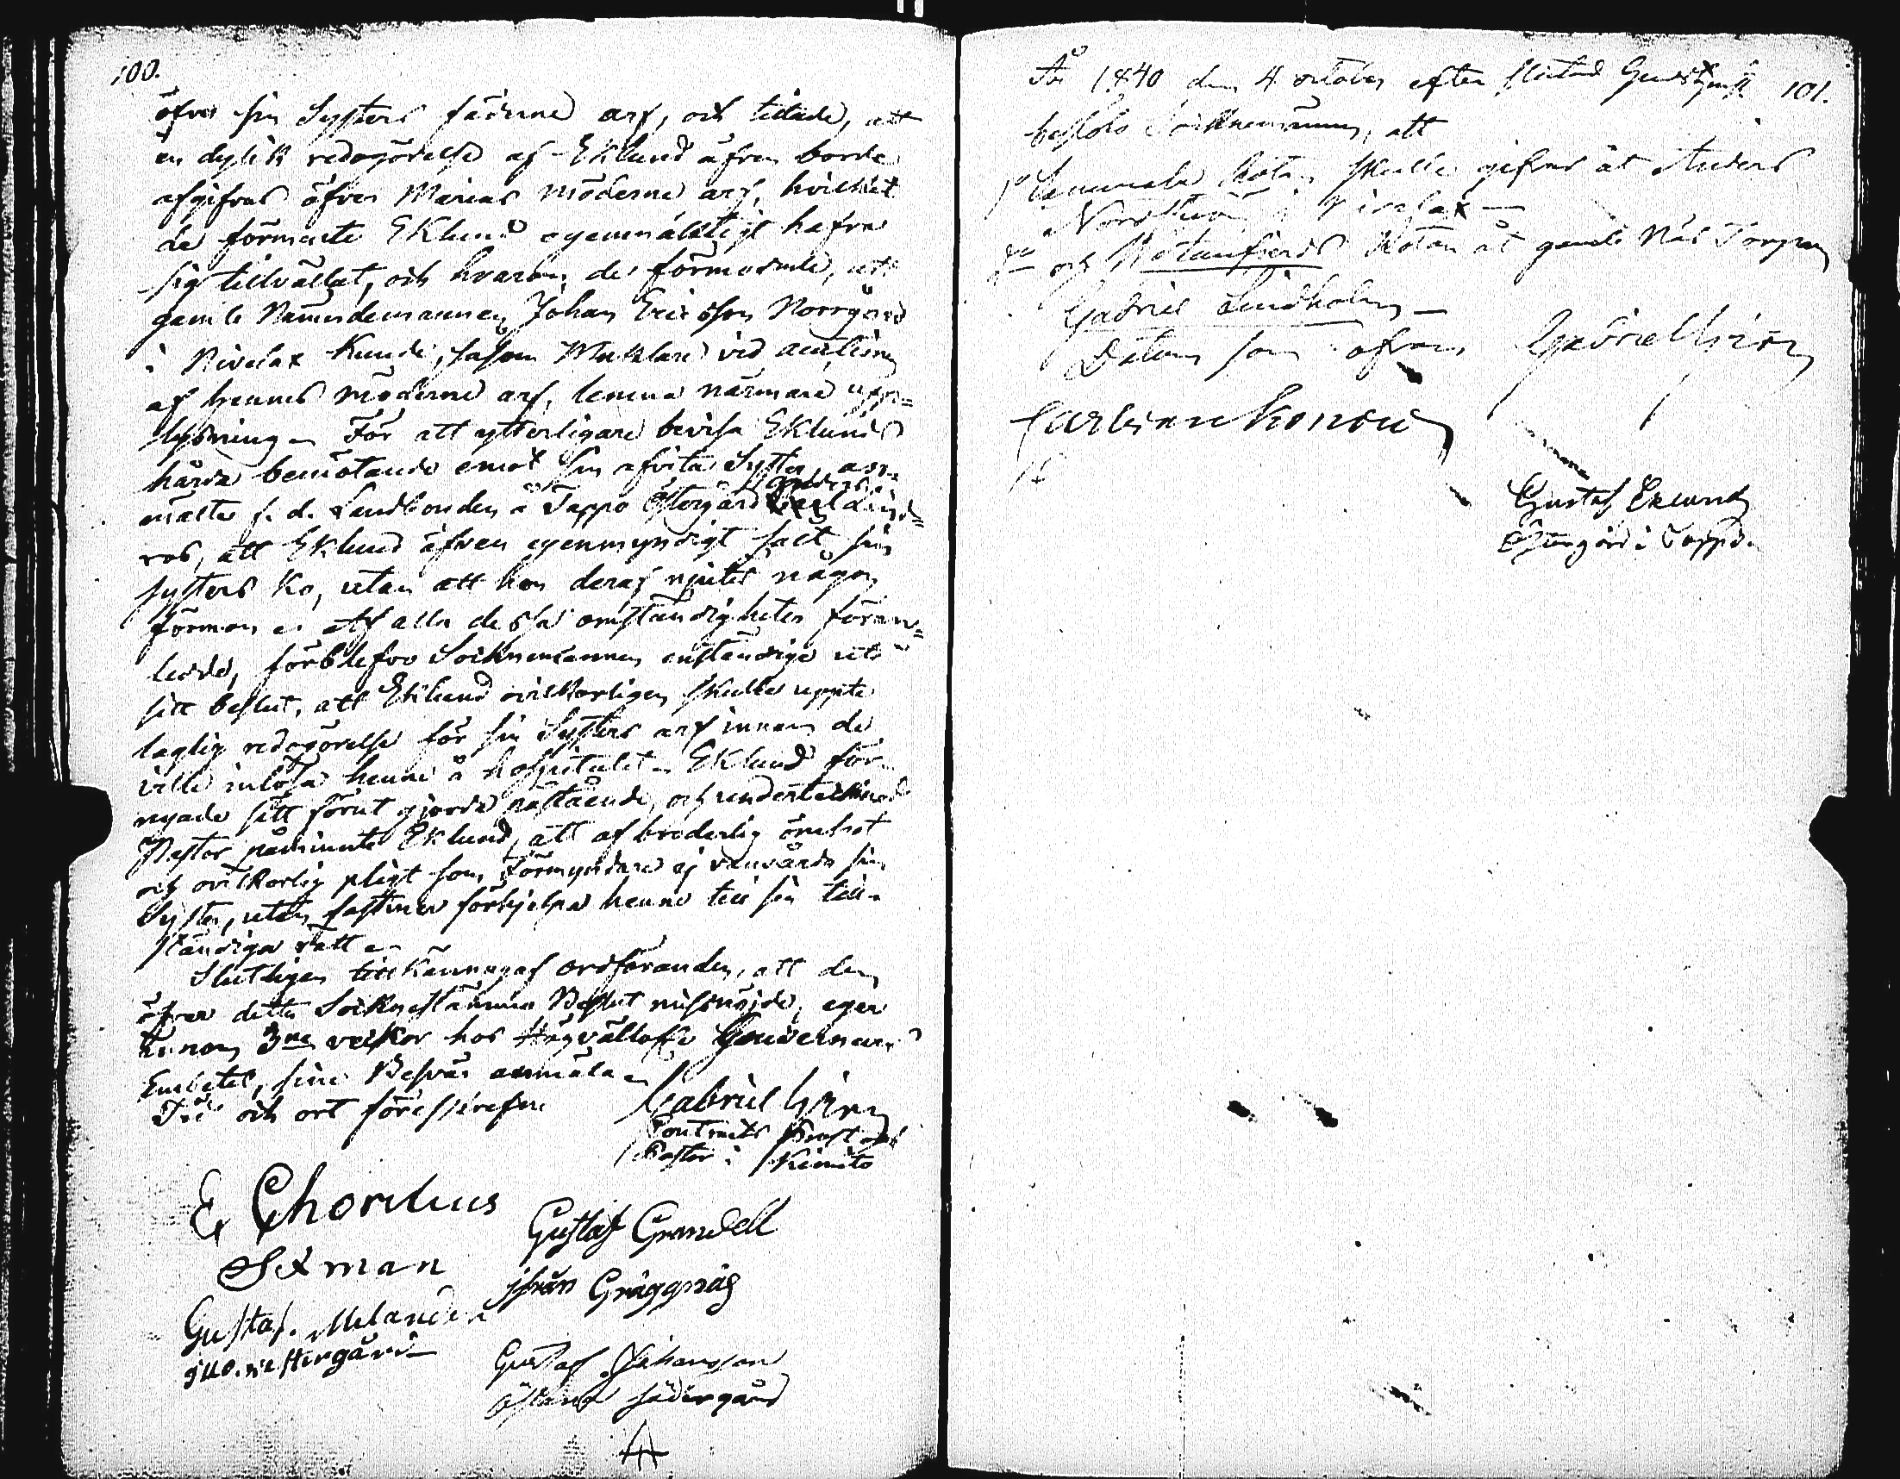 100.
öfver sin Systers fäderne arf, och tillade, att
en dylik redogörelse af Eklund äfven borde
afgifvas öfver Marias möderne arf, hvilket
de förmente Eklund egenmäktigt hafva
sig tillvällat, och hvarom de förmodade, att
gamle Nämndemannen Johan Ericsson Norrgård
i Rivelax kunde, såsom Mäklare vid
af hennes möderne arf, lemna närmare upp=
lysning. För att ytterligare bevisa Eklunds
hårda bemötande emot sin afvita Syster, an=
mälte f. d. Landbonden å Tappo Östergård Lind=
ros, att Eklund äfven egenmyndigt sålt sin
systers Ko, utan att hon deraf njutit någon
förmon. Af alla dessa omständigheter föran=
ledde, förblefvo Socknemännen enständige uti
sitt beslut, att Eklund ovilkorligen skulle uppte
laglig redogörelse för sin Systers arf innan de
ville inlösa henne å hospitalet. Eklund för=
nyade sitt förut gjorda påstående, och undertecknad
Pastor påminnte Eklund, att af broderlig ömhet
och ovilkorlig pligt som Förmyndare ej vanvårda sin
Syster, utan fastmer förhjelpa henne till sin till=
ständiga rätt.
Slutligen tillkännagaf ordföranden, att den
öfver detta SockneStämmo Beslut missnöjde, eger
innom 3ne veckor hos Högvällofl. Gouverneurs
Embetet, sine Besvär anmäla.
Tid och ort föreskrefne
Gabriel Hirn
Contracts Prost och
Pastor i Kimito
E Chorelius
Sexman
Gustaf Grandell
ifrån Gräggnäs
Gustaf Melander
Westergård
Gustaf Johansson
Södergård
101.
År 1840 den 4 october efter slutad Gudstjenst
beslöto Socknemännen, att
1o Rotan skulle gifvas åt Anders
i Rivelax
2o och Rotan åt gamle Näs Torparn
Gabriel Lindholm
Datum som ofvan Gabriel Hirn
Carl von Konow
Gustaf Eklund
Östergård i Tappo.